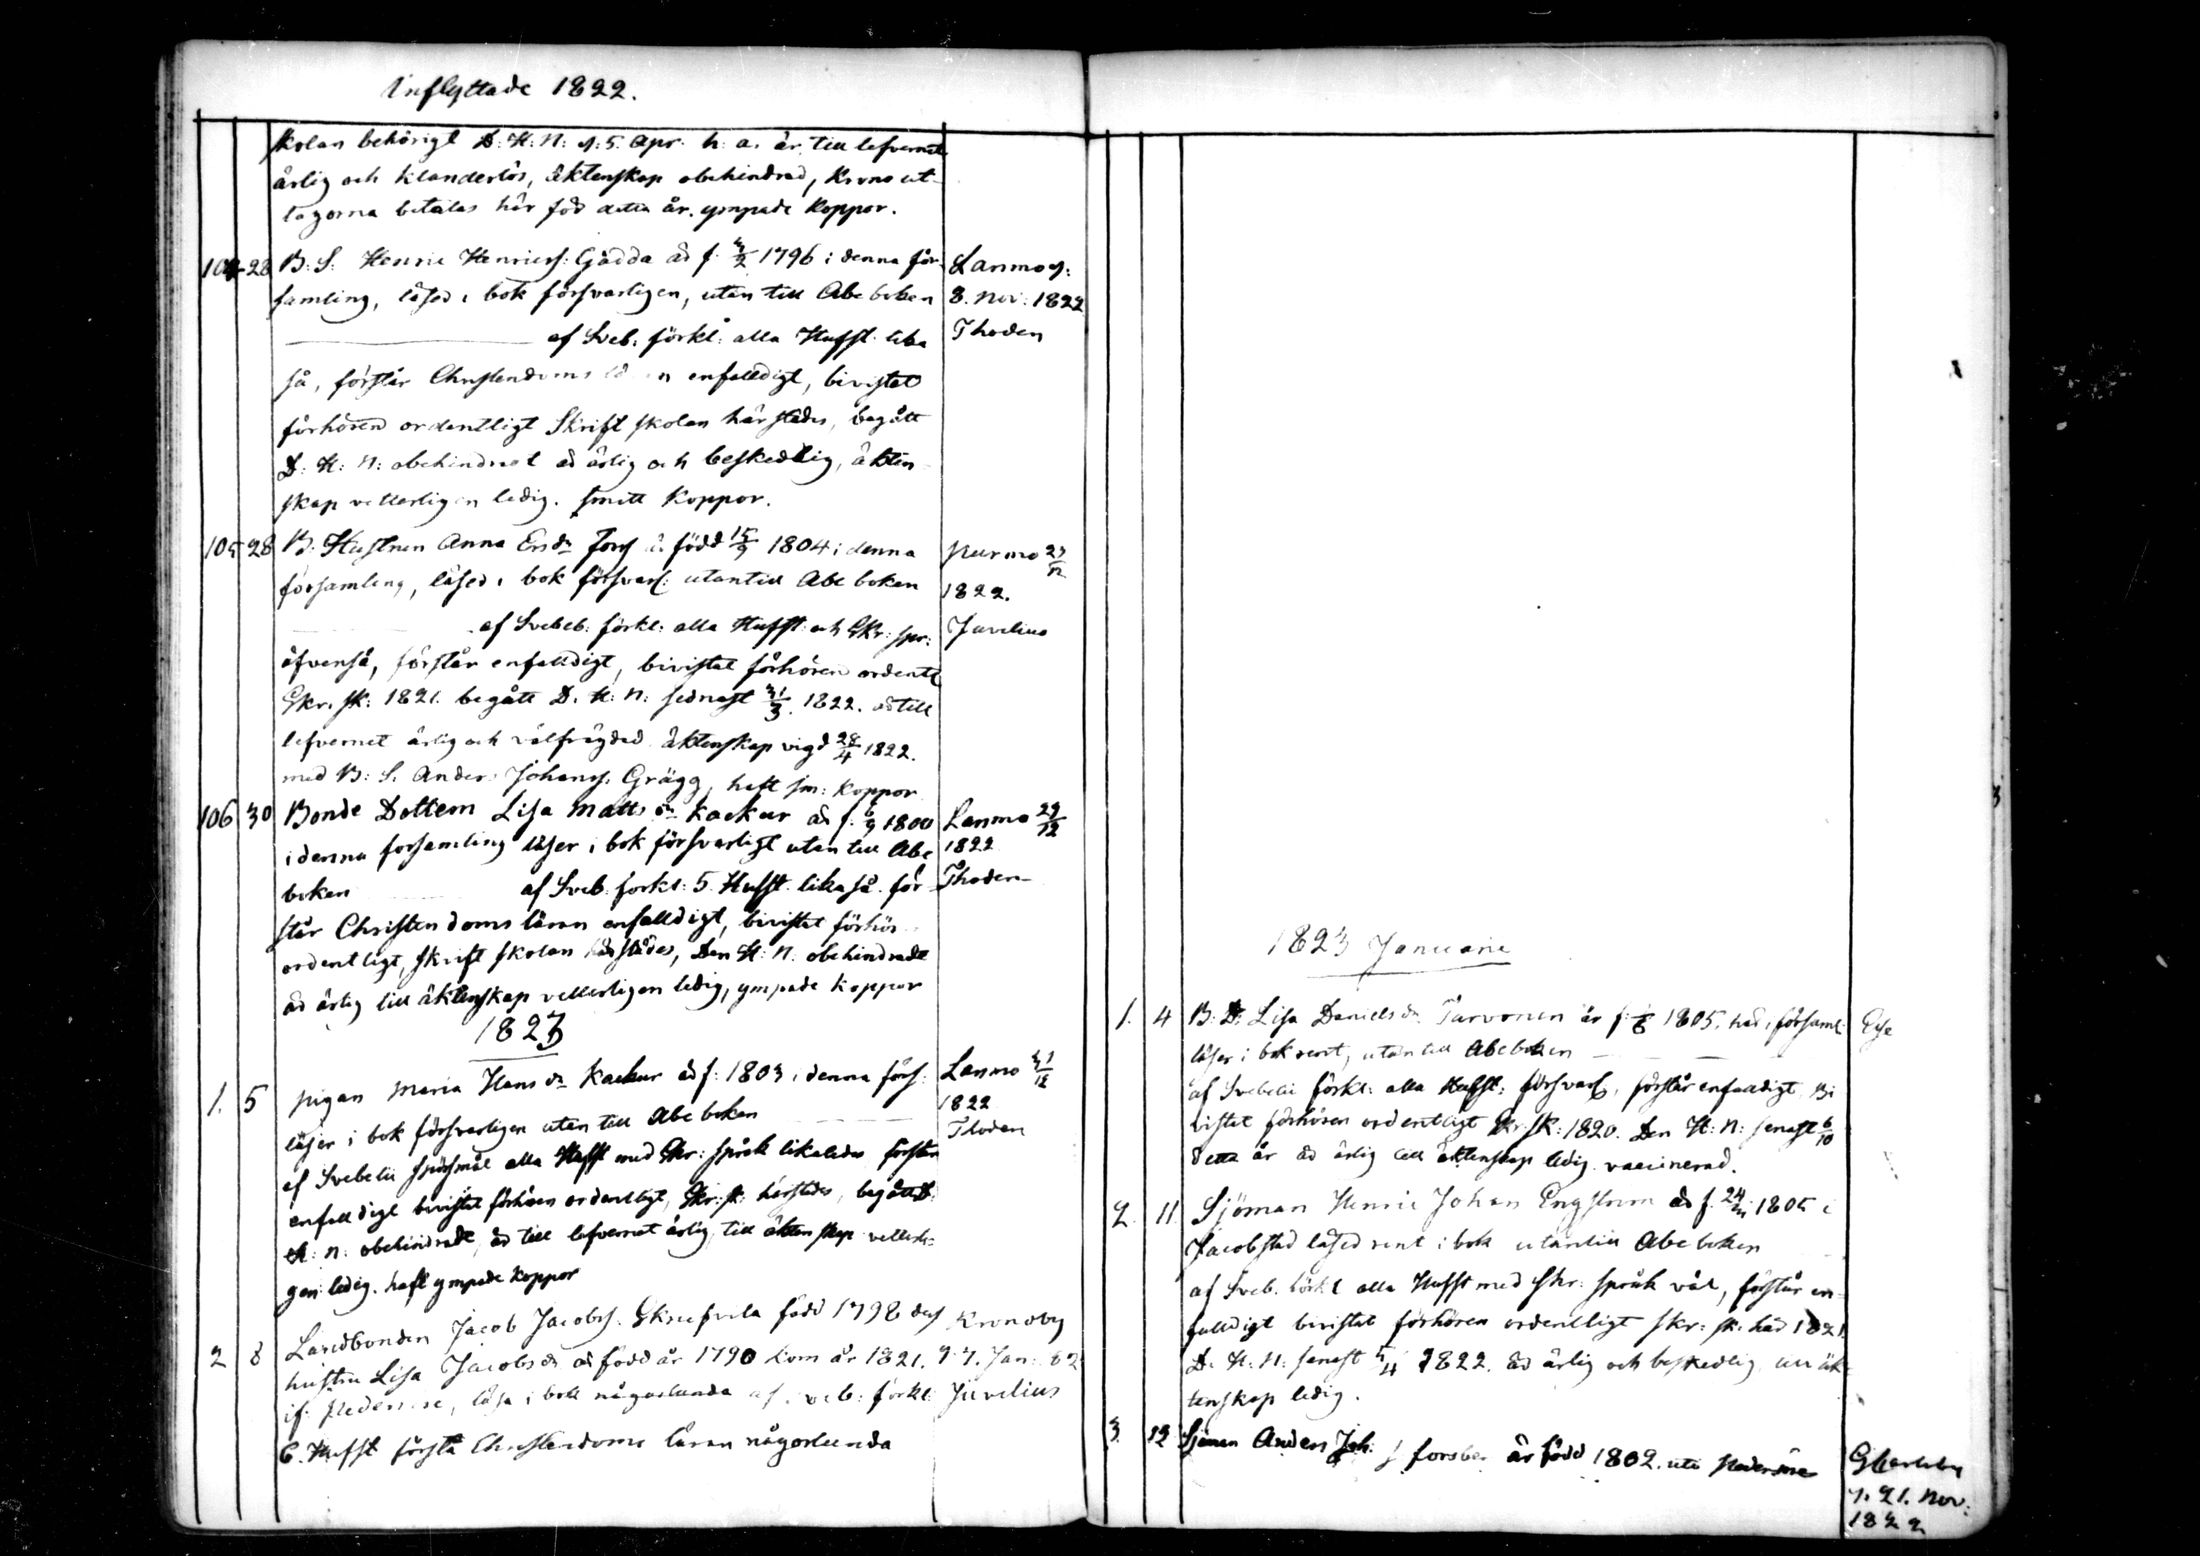 Inflyttade 1822.
skolan behörigt D: H: N: d. 5 Apr. h. a. är till lefvernet
ärlig och klanderlös, äktenskap obehindrad, Krono ut-
lagorna betalas här för detta år. ympade Koppor.
104 28 B: S: Henric Henricss: Gädda äd f. 1796 i denna för-
samling, läser i bok försvarligen, utan till Abc boken
af Sveb: förkl: alla Hufst. lika
så, förstår Christendoms enfalldigt, bevistat
förhören ordentligt Skrift skolan härstädes, begått
D: H: N: obehindrat äd ärlig och beskedlig, äkten-
skap vetterligen ledig. smitt Koppor.
Lanmo d:
8. Nov: 1822
Thoden
105 28 B: Hustrun Anna Ersdr född 15/9 1804 i denna
församling, läser i bok försvarl: utantill Abc boken
af Svebeb: förkl: alla Hufst: och Skr: spr:
äfvenså, förstår enfalldigt, bivistat förhören ordentl
Skr. sk: 1821. begått D. H: N: sednast 31/3. 1822. äd till
lefvernet ärlig och välfrägdad äktenskap vigd 28/4 1822.
med B: S. Anders Johanss. Grägg, haft sm: Koppor
Purmo 27/12
1822.
Juvelius
106 30 Bonde Dottern Lisa Matts dr Kackur äd f. 6/9 1800
i denna församling läser i bok försvarligt utan till Abc
boken af Sveb. förkl: 5 Hufst. lika så för-
står Christendoms läran enfalldigt, bivistat förhör
ordentligt, Skrift skolan härstädes, Den H: N. obehindradt
äd ärlig till äktenskap vetterligen ledig, ympade Koppor
Lanmo 29/12
1822
Thoden
1823
1. 5 Pigan Maria Hans dr Kackur äd f: 1803 i denna förs:
läser i bok försvarligen utan till Abc boken
af Svebelii spörsmål alla Hufst med Skr: språk likaledes förstår
enfalldigt bivistat förhören ordentligt, Skr: sk: härstädes, begått D.
H: N: obehindradt, äd till lefvernet ärlig, till äktenskap vetterli-
gen ledig. haft ympade Koppor
Lanmo 31/12
1822
Thoden
2 8 Landbonden Jacob Jacobss. född 1798 dess
hustru Lisa Jacobs dr äd född år 1790 kom år 1821.
if: Pedersöre, läsa i bok någorlunda af Sveb: förkl:
6. Hufst förstå Christendoms läran någorlunda
Kronoby
d. 7. Jan:
Juvelius
1823 Januarii
1. 4 B: D: Lisa Daniels dr Tarvonen är f. 1805. häd i församl:
läser i bok rent, utan till Abc boken
af Svebelii förkl: alla Hufst: försvarl, förstår enfalldigt, Bi-
vistat förhören ordentligt Skr: sk: 1820. Den H: N: senast 6/10
detta år äd ärlig till äktenskap ledig. vaccinerad.
2. 11 Sjöman Henric Johan Engström äd f. 1805 i
Jacobstad läser rent i bok utantill Abc boken
af Sveb. förkl alla Hufst med Skr: språk väl, förstår en-
falldigt bivistat förhören ordentligt skr: sk: häd 1821
D. H: N: senast 1822. äd ärlig och beskedlig, till äk-
tenskap ledig.
3. 12 Sjöman Anders Joh: forsber är född 1802. uti Pedersöre
d. 21. Nov:
1822